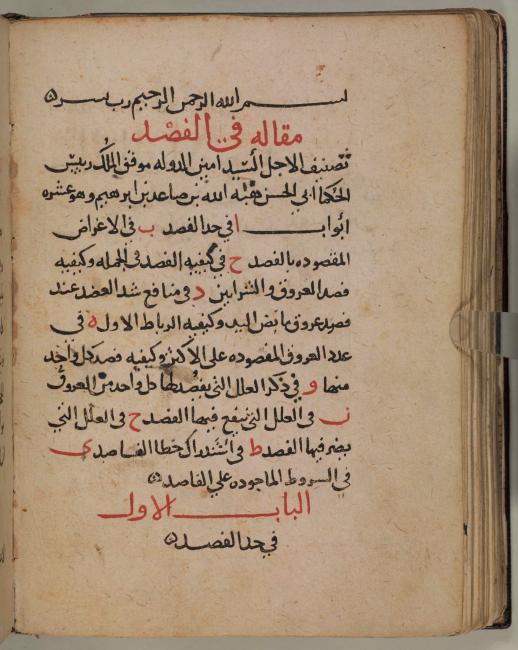 بسم الله الرحمن الرحيم رب يسر ٥
مقاله في الفصد
تصنيف الاجل السيد امين الدوله موفق الملك رييس
الحكما ابي الحسن هبة الله بن صاعد بن ابرهيم وهو عشره
ابواب ا في حد الفصد ب في الاغراض
المقصوده بالفصد ح في كيفيه الفصد في الجمله وكيفيه
فصد العروق والشرايين د في منافع شد العضد عند
فصد عروق مابض اليد وكيفيه الرباط الاول ه في
عدد العروق المفصوده علي الاكثر وكيفيه فصد كل واحد
منها و في ذكر العلل التي يفصد لها كل واحد من العروق
ز في العلل التي ينفع فيها الفصد ح في العلل التي
يضر فيها الفصد ط في استدراك خطا الفاصد ي
في الشروط الماخوده علي الفاصد ٥
الباب الاول
في حد الفصد ٥